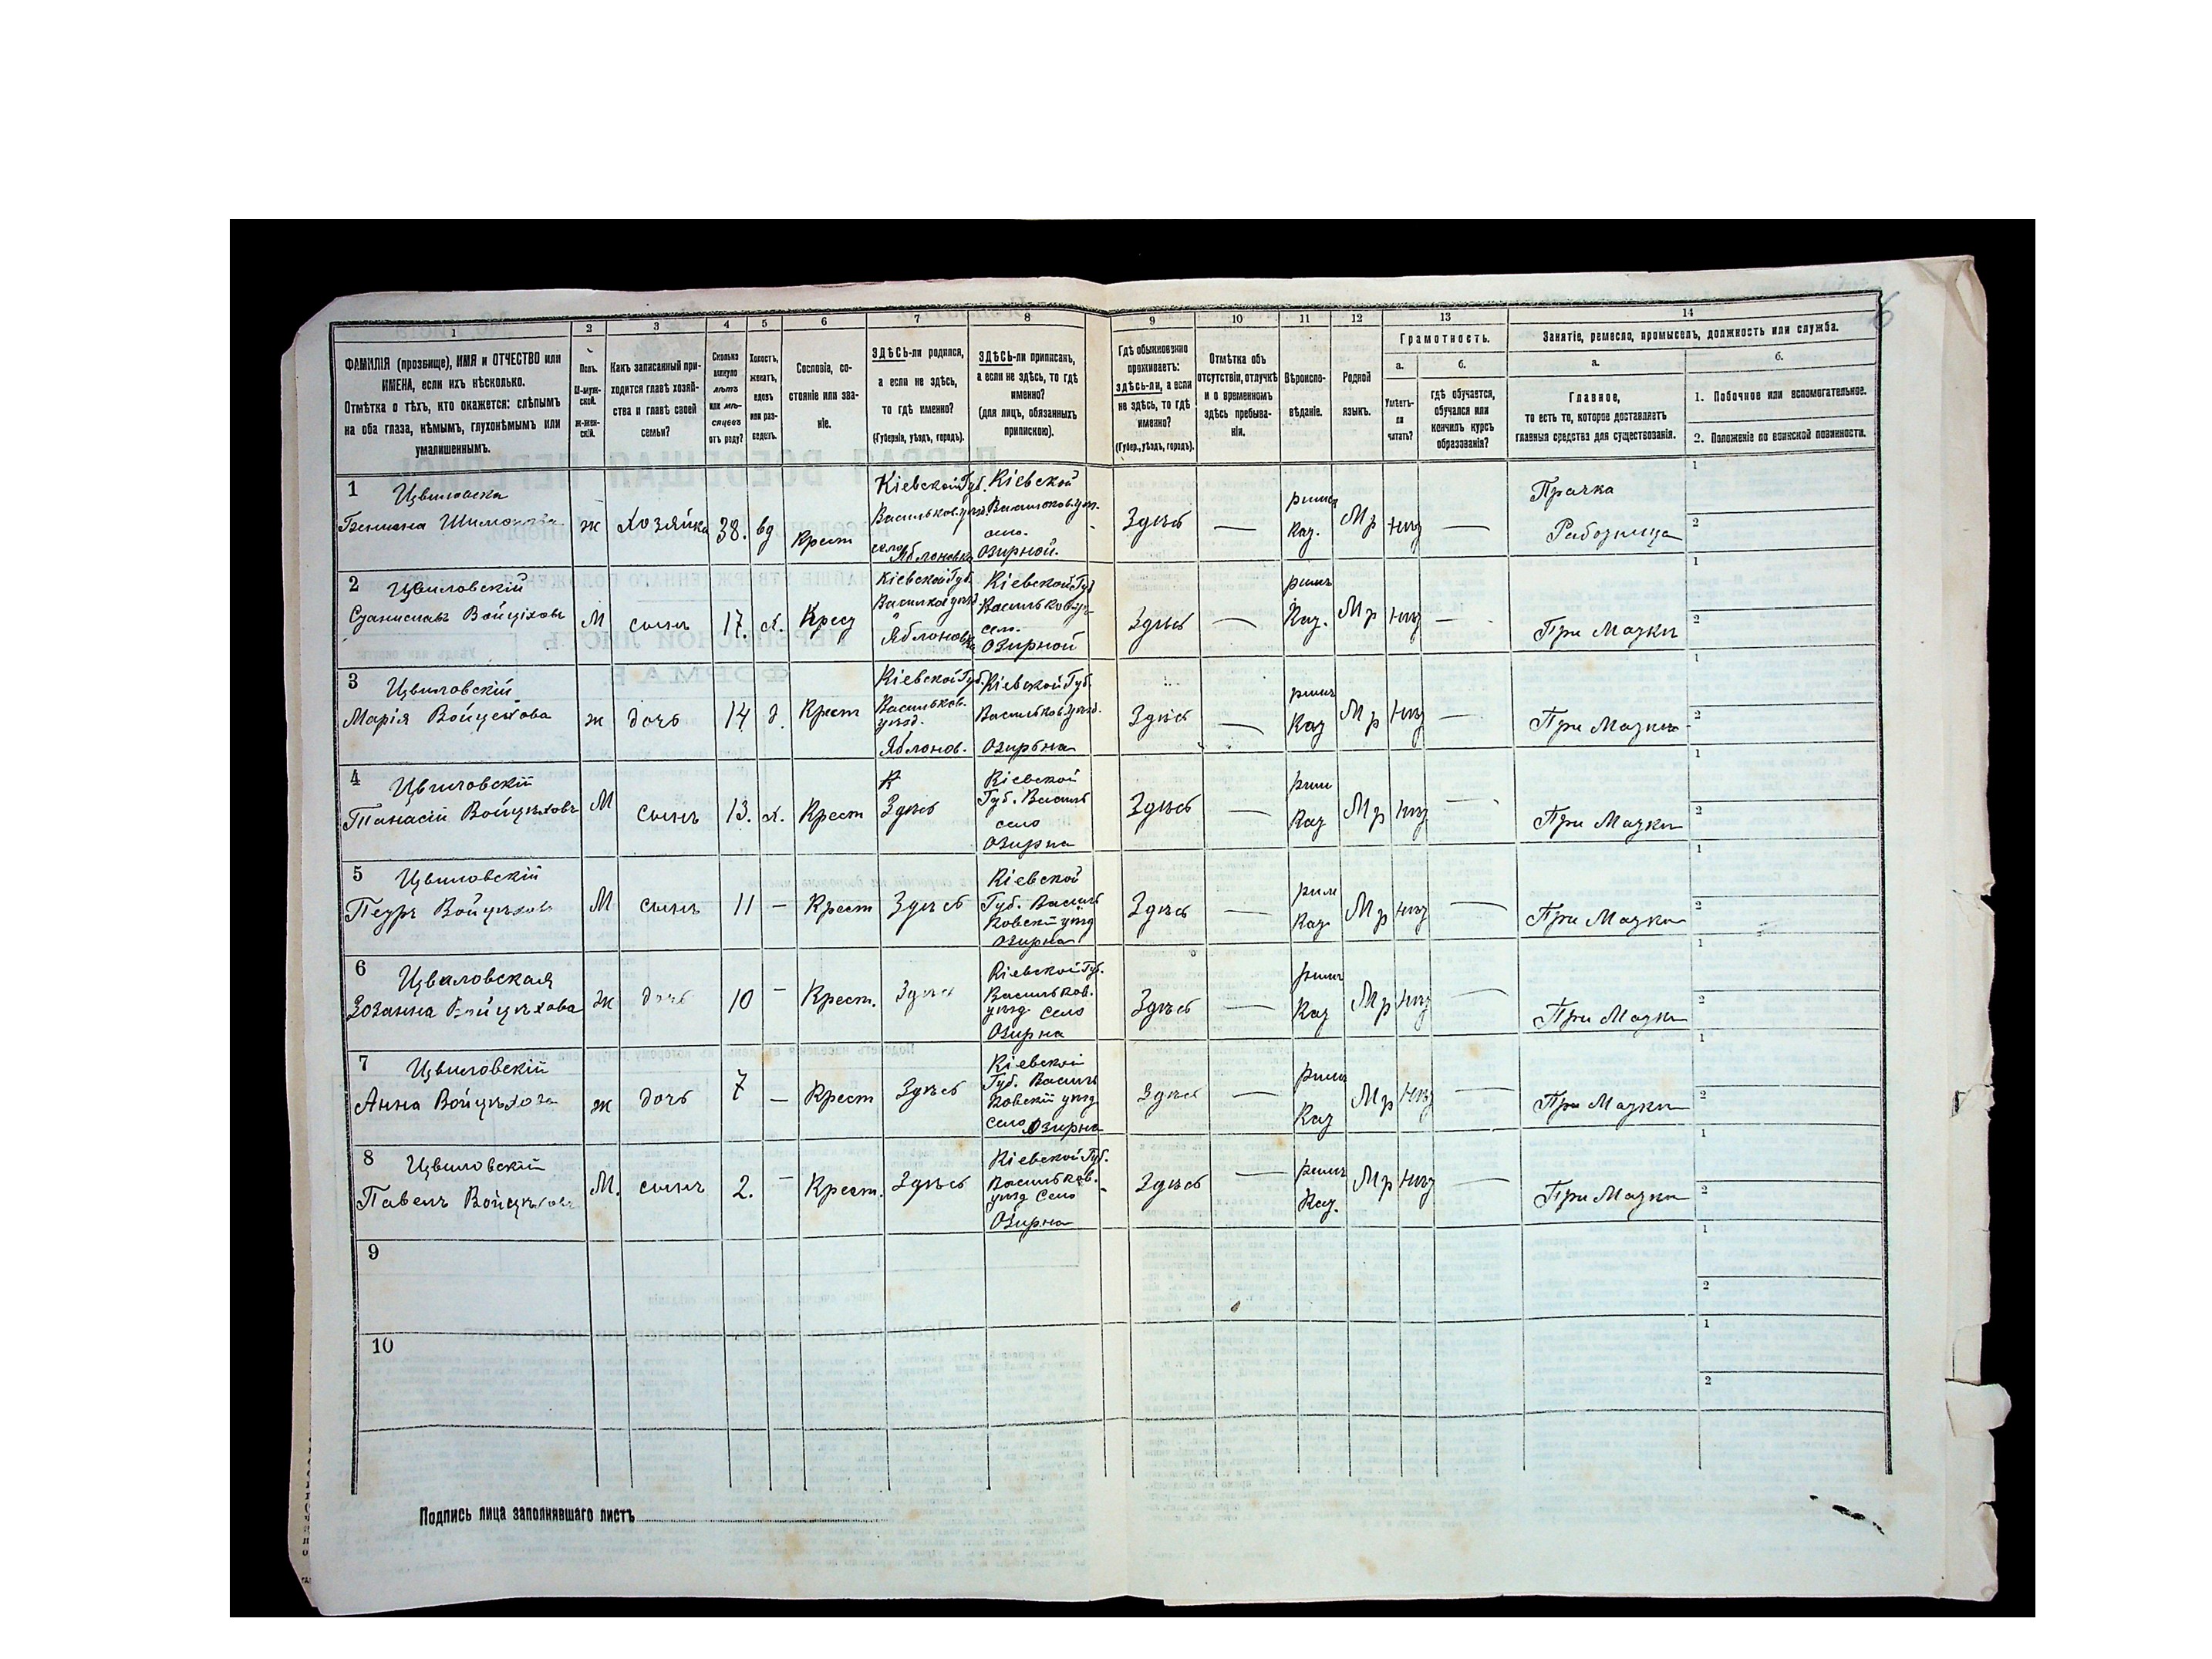 1 2 3 4 5 6 7 8 9 10 11 12 13 14
ФАМИЛІЯ (прозвище), ИМЯ и ОТЧЕСТВО или
ИМЕНА, если ихъ нѣсколько.
Отмѣтка о тѣхъ, кто окажется: слѣпымъ
на оба глаза, нѣмымъ, глухонѣмымъ или
умалишеннымъ.
Полъ.
М-муж-
ской.
ж-жен-
скій.
Какъ записанный при-
ходится главѣ хозяй-
ства и главѣ своей
семьи?
Сколько
минуло
лѣтъ
или мѣ-
сяцевъ
отъ роду?
Холостъ,
женатъ,
вдовъ
или раз-
веденъ.
Сословіе, со-
стояніе или зва-
ніе.
ЗДѢСЬ-ли родился,
а если не здѣсь,
то гдѣ именно?
(Губернія, уѣздъ, городъ).
ЗДѢСЬ-ли приписанъ,
а если не здѣсь, то гдѣ
именно?
(для лицъ, обязанныхъ
припискою).
Гдѣ обыкновенно
проживаетъ:
здѣсь-ли, а если
не здѣсь, то гдѣ
именно?
(Губер., уѣздъ, городъ).
Отмѣтка объ
отсутствіи, отлучкѣ
и о временномъ
здѣсь пребыва-
ніи.
Вѣроиспо-
вѣданіе.
Родной
языкъ.
Грамотность.
а.
Умѣетъ-
ли
читать?
б.
гдѣ обучается,
обучался или
кончилъ курсъ
образованія?
Занятіе, ремесло, промыселъ, должность или служба.
а.
Главное,
то есть то, которое доставляетъ
главныя средства для существованія.
б.
1. Побочное или вспомогательное.
2. Положеніе по воинской повинности.
1 Цвиловска
ж Хозяйка 38. вд Крест
Кіевской Губ.
Васильков. уѣзд.
село Яблоновка
Кіевской
Васильков. уѣз.
село.
Озирной.
Здѣсь — римс Кат. Мр нѣт —
Прачка
Работница
2 Цвиловскій
Станиславъ Войціховъ М сынъ 17. х. Крест
Кіевской Губ.
Яблоновка
Кіевской Губ
Васильков. уѣ-
село.
Озирной
Здѣсь — римъ Кат. Мр нѣт — При Матки
3 Цвиловскій
Марія Войцехова ж дочь 14 д. Крест
Кіевской Губ.
Васильков.
уѣзд.
Яблонов.
Кіевской Губ.
Васильков. уѣзд.
Озирьна
Здѣсь — римъ Кат Мр нѣт — При Матки
4 Цвиловскій
Танасій Войцѣховъ М сынъ 13. х. Крест
К
Здѣсь
Кіевской
Губ. Василь
село
Озирна
Здѣсь — рим Кат Мр нѣт — При Матки
5 Цвиловскій
Петръ Войцѣховъ М сынъ 11 — Крест Здѣсь
Кіевской
Губ. Василь
ковскій уѣзд
Озирна
Здѣсь — рим Кат Мр нѣт — При Матки
6 Цвиловская
Зозанна Войцѣхова ж дочь 10 — Крест. Здѣсь
Кіевской Губ.
Васильков.
уѣзд село
Озирна
Здѣсь — римъ Кат Мр нѣт — При Матки
7 Цвиловскій
Анна Войцѣхова ж дочь 7 — Крест Здѣсь
Кіевской
Губ. Василь
ковскій уѣзд
село Озирна
Здѣсь — римъ Кат Мр нѣт — При Матки
8 Цвиловскій
Павелъ Войцѣховъ М. сынъ 2. — Крест. Здѣсь
Кіевской Губ.
Васильков.
уѣзд Село
Озирна
Здѣсь — римъ Кат. Мр нѣт — При Матки
9
10
Подпись лица заполнявшаго листъ